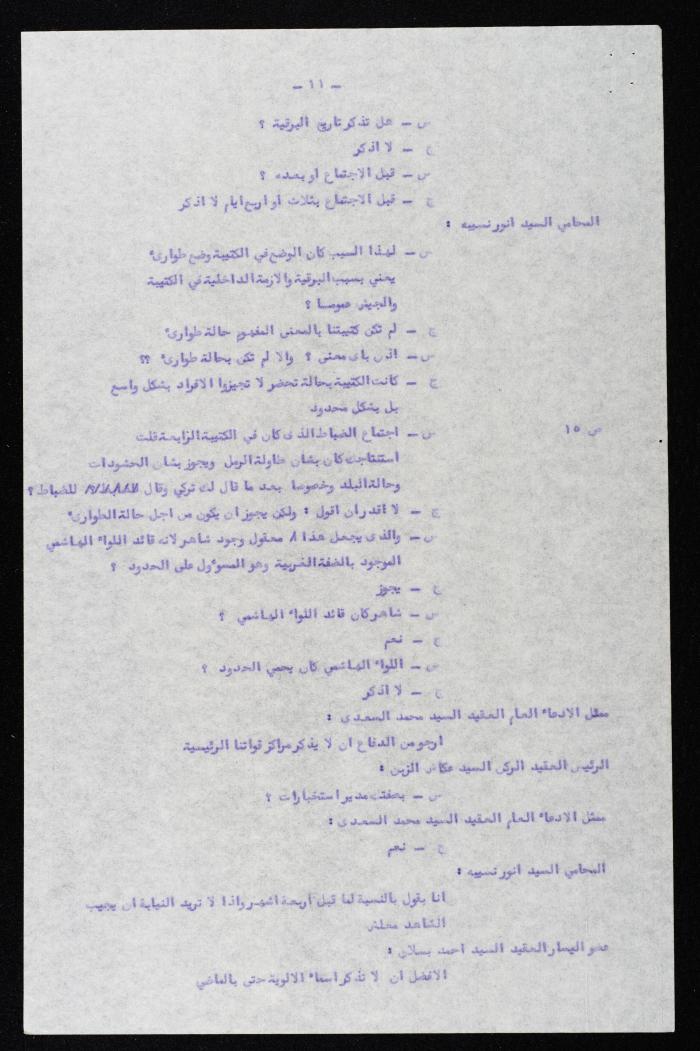 - ١١ -
س - هل تذكر تاريخ البرقية ؟
ج - لا اذكر
س - قبل الاجتماع او بعده ؟
ج - قبل الاجتماع بثلاث أو اربع ايام لا اذكر
المحامي السيد انور نسيبه :
س - لهذا السبب كان الوضع في الكتيبة وضع طوارئ
يعني بسبب البرقية والازمة الداخلية في الكتيبة
والجيش عموما ؟
ج - لم تكن كتيبتنا بالمعنى المفهوم حالة طوارئ
س - اذن باى معنى ؟ والا لم تكن بحالة طوارئ ؟؟
ج - كانت الكتيبة بحالة تحضر لا تجيزوا الافراد بشكل واسع
بل بشكل محدود
ص ١٥
س - اجتماع الضباط الذى كان في الكتيبة الرابعة قلت
استنتاجك كان بشان طاولة الرمل ويجوز بشان الحشودات
وحالة البلد وخصوصا بعد ما قال لك تركي وقال للضباط ؟
ج - لا اقدر ان اقول : ولكن يجوز ان يكون من اجل حالة الطوارئ
س - والذى يجعل هذا معقول وجود شاهر لانه قائد اللواء الهاشمي
الموجود بالضفة الغربية وهو المسوول على الحدود ؟
ج - يجوز
س - شاهر كان قائد اللواء الهاشمي ؟
ج - نعم
س - اللواء الهاشمي كان يحمي الحدود ؟
ج - لا اذكر
ممثل الادعاء العام العقيد السيد محمد السعدى :
ارجو من الدفاع ان لا يذكر مراكز قواتنا الرئيسية
الرئيس العقيد الركن السيد عكاش الزبن :
س - بصفتك مدير استخبارات ؟
ممثل الادعاء العام العقيد السيد محمد السعدى :
ج - نعم
المحامي السيد انور نسيبه :
انا بقول بالنسبة لما قبل أربعة اشهر واذا لا تريد النيابة ان يجيب
الشاهد معلش
عضو اليسار العقيد السيد احمد بسلان :
الافضل ان لا تذكر اسماء الالوية حتى بالماضي